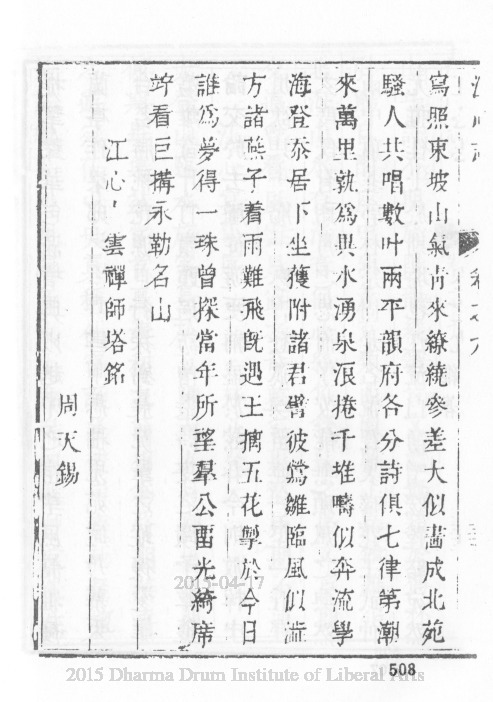 寫照東坡山氣靑來繚繞參差大似畫成北苑
騷人共唱數叶兩平韻府各分詩俱七律第潮
來萬里孰爲與水湧泉浪捲千堆疇似奔流學
海登泰居下坐獲附諸君譬彼鶯雛臨風似澁
方諸燕子着雨難飛旣遇王擒五花擘於今日
誰爲夢得一珠曾探當年所望羣公畱光綺席
竚看巨搆永勒名山
江心 雲禪師塔銘
周天錫
508
2015-04-17
2015 Dharma Drum Institute of Liberal Arts